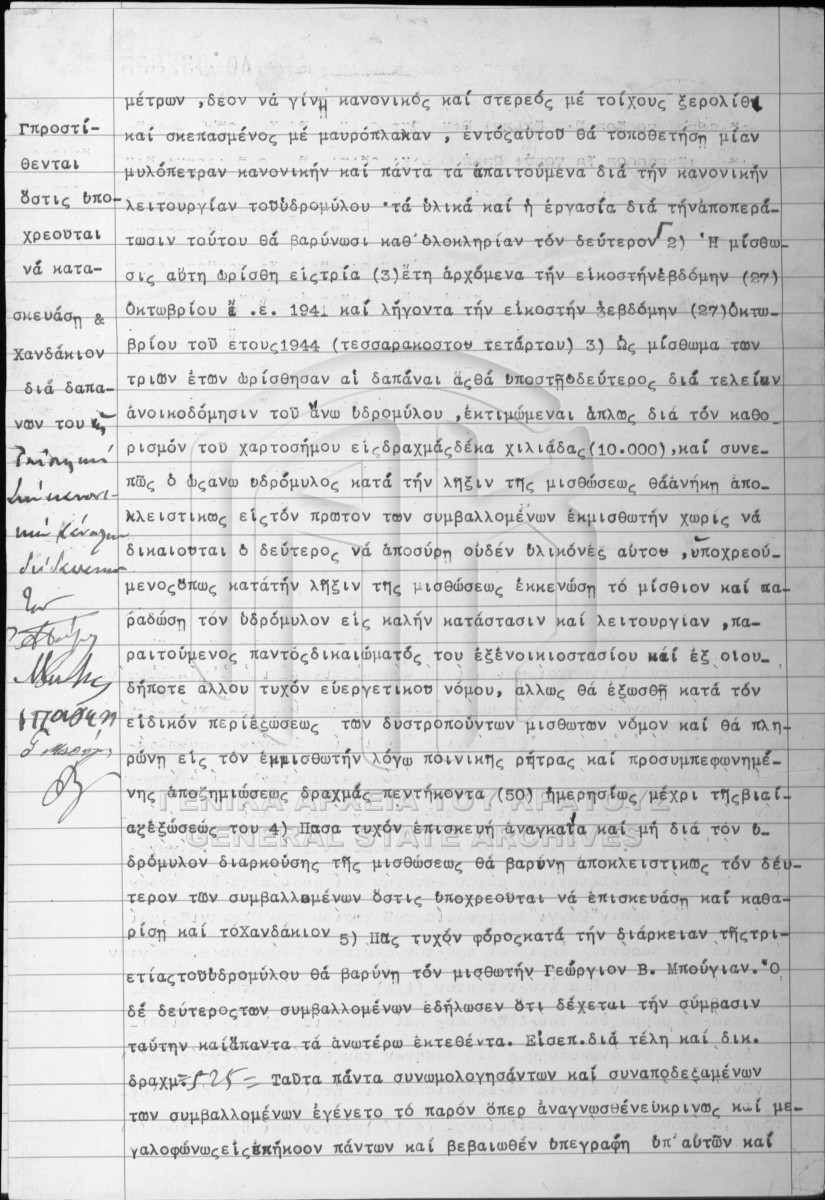 Γπροστί-
θενται
ὅστις ὑπο-
χρεοῦται
νά κατα-
σκευάσῃ &
Χανδάκιον
διά δαπα-
νῶν του
μέτρων ,δέον νά γίνῃ κανονικός καί στερεός μέ τοίχους ξερολίθι
καί σκεπασμένος μέ μαυρόπλακαν , ἐντόςαὐτοῦ θά τοποθετήσῃ μίαν
μυλόπετραν κανονικήν καί πάντα τά ἀπαιτούμενα διά τήν κανονικήν
λειτουργίαν τοῦὑδρομύλου ·τά ὑλικά καί ἡ ἐργασία διά τήνἀποπερά-
τωσιν τούτου θά βαρύνωσι καθ'ὁλοκληρίαν τόν δεύτερονΓ2) Ἡ μίσθω-
σις αὕτη ὡρίσθη εἰςτρία (3)ἔτη ἀρχόμενα τήν εἰκοστήνἑβδόμην (27)
Ὀκτωβρίου ἔ .ἔ. 1941 καί λήγοντα τήν εἰκοστήν ἑεβδόμην (27)Ὀκτω-
βρίου τοῦ ἔτους1944 (τεσσαρακοστοῦ τετάρτου) 3) Ὡς μίσθωμα τῶν
τριῶν ἐτῶν ὡρίσθησαν αἱ δαπάναι ἅςθά ὑποστῇὁδεύτερος διά τελείαν
ἀνοικοδόμησιν τοῦ ἄνω ὑδρομύλου ,ἐκτιμώμεναι ἁπλῶς διά τόν καθο-
ρισμόν τοῦ χαρτοσήμου εἰςδραχμάςδέκα χιλιάδας(10.000),καί συνε-
πῶς ὁ ὡςἄνω ὑδρόμυλος κατά τήν λῆξιν τῆς μισθώσεως θάἀνήκῃ ἀπο-
κλειστικῶς εἰςτόν πρῶτον τῶν συμβαλλομένων ἐκμισθωτήν χωρίς νά
δικαιοῦται ὁ δεύτερος νά ἀποσύρῃ οὐδέν ὑλικόνἐξ αὐτοῦ ,ὑποχρεού-
μενοςὅπως κατάτήν λῆξιν τῆς μισθώσεως ἐκκενώσῃ τό μίσθιον καί πα-
ραδώσῃ τόν ὑδρόμυλον εἰς καλήν κατάστασιν καί λειτουργίαν ,πα-
ραιτούμενος παντόςδικαιώματός του ἐξἐνοικιοστασίου καί ἐξ οἱου-
δήποτε ἄλλου τυχόν εὐεργετικοῦ νόμου, ἄλλως θά ἐξωσθῇ κατά τόν
εἰδικόν περίἐξώσεως τῶν δυστροπούντων μισθωτῶν νόμον καί θά πλη-
ρώνῃ εἰς τόν ἐκμισθωτήν λόγῳ ποινικῆς ρήτρας καί προσυμπεφωνημέ-
νης ἀποζημιώσεως δραχμάς πεντήκοντα (50) ἡμερησίως μέχρι τῆςβιαί-
αςἐξώσεώς του 4) Πᾶσα τυχόν ἐπισκευή ἀναγκαία καί μή διά τόν ὑ-
δρόμυλον διαρκούσης τῆς μισθώσεως θά βαρύνῃ ἀποκλειστικῶς τόν δεύ-
τερον τῶν συμβαλλομένων ὅστις ὑποχρεοῦται νά ἐπισκευάσῃ καί καθα-
ρίσῃ καί τόΧανδάκιον 5) Πᾶς τυχόν φόροςκατά τήν διάρκειαν τῆςτρι-
ετίαςτοῦὑδρομύλου θά βαρύνῃ τόν μισθωτήν Γεώργιον Β. Μπούγιαν.Ὁ
δέ δεύτεροςτῶν συμβαλλομένων ἐδήλωσεν ὅτι δέχεται τήν σύμβασιν
ταύτην καίἅπαντα τά ἀνωτέρω ἐκτεθέντα. Εἰσεπ.διά τέλη καί δικ.
δραχμ=525= Ταῦτα πάντα συνωμολογησάντων καί συναποδεξαμένων
τῶν συμβαλλομένων ἐγένετο τό παρόν ὅπερ ἀναγνωσθένεὐκρινῶς καί με-
γαλοφώνωςεἰςἐπήκοον πάντων καί βεβαιωθέν ὑπεγράφη ὑπ'αὐτῶν καί
ΓΕΝΙΚΑ ΑΡΧΕΙΑ ΤΟΥ ΚΡΑΤΟΥΣ
GENERAL STATE ARCHIVES